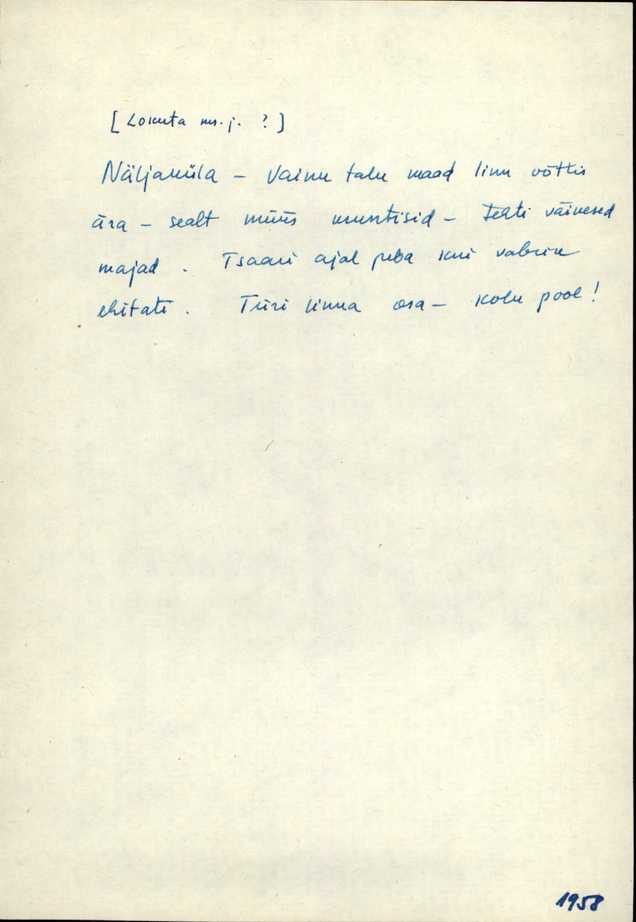 [Lokuta ms. j. ?]
Näljaküla – Vainu talu maad linn võttis
ära – sealt müüs kruntisid – Tehti väikesed
majad. Tsaari ajal juba kui vabrik
ehitati. Türi linna osa – Kolu pool!
1958